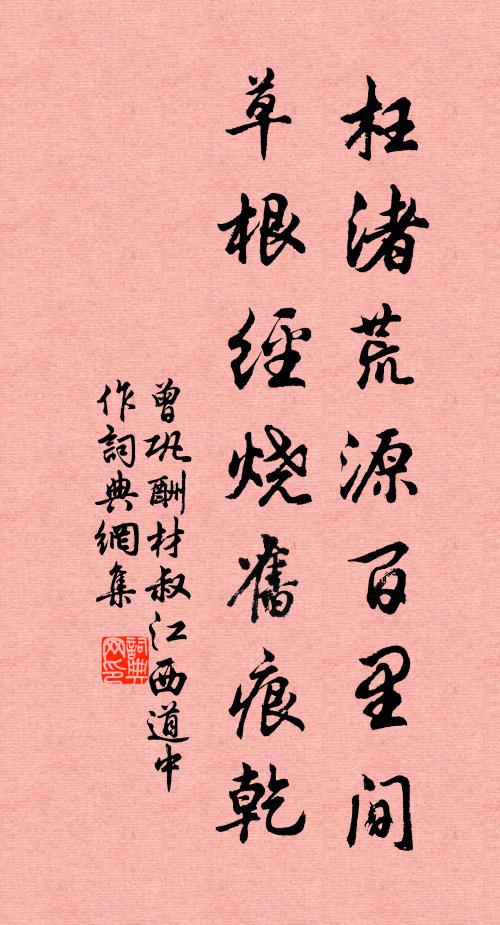 枉渚荒源百里间
草根經烧舊痕乾
曾巩酬材叔江西道中
作詞典網集
詞典
网印